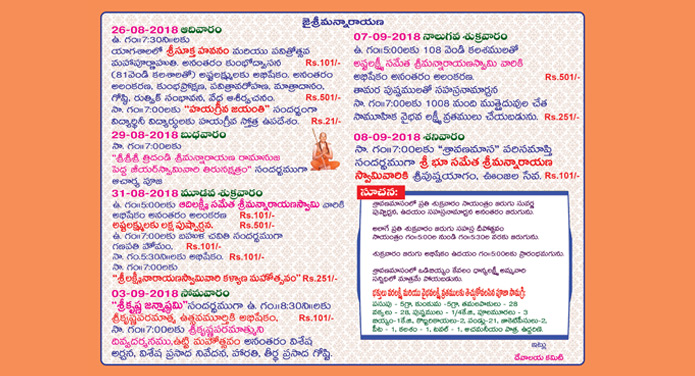 జైశ్రీమన్నారాయణ
26-08-2018 ఆదివారం
ఉ. గం॥7:30నిలకు
యాగశాలలో శ్రీసూక్త హవనం మరియు పవిత్రోత్సవ
మహాపూర్ణాహుతి. అనంతరం కుంభోద్వాసన Rs.101/-
(81వెండి కలశాలతో) అష్టలక్ష్ములకు అభిషేకం. అనంతరం
అలంకరణ, కుంభప్రోక్షణ, పవిత్రావరోహణ, మాత్రాదానం,
గోష్ఠి, రుత్విక్ సంభావన, వేద ఆశీర్వచనం. Rs.501/-
సా. గం॥7:00లకు "హయగ్రీవ జయంతి" సందర్భంగా
విద్యార్థినీ విద్యార్థులకు హయగ్రీవ స్తోత్ర ఉపదేశం. Rs.21/-
29-08-2018 బుధవారం
సా. గం॥7:00లకు
"శ్రీశ్రీశ్రీ త్రిదండి శ్రీమన్నారాయణ రామానుజ
పెద్ద జీయర్‌స్వామివారి తిరునక్షత్రం" సందర్భముగా
ఆచార్య పూజ
31-08-2018 మూడవ శుక్రవారం
ఉ. గం॥5:00లకు ఆదిలక్ష్మీ సమేత శ్రీమన్నారాయణస్వామి వారికి
అభిషేకం అనంతరం అలంకరణ Rs.101/-
అష్టలక్ష్ములకు లక్ష పుష్పార్చన. Rs.501/-
ఉ. గం॥7:00లకు బహుళ చవితి సందర్భముగా
గణపతి హోమం. Rs.101/-
సా. గం.5:30నిలకు అభిషేకం. Rs.101/-
సా. గం॥7:00లకు
"శ్రీలక్ష్మీనారాయణస్వామివారి కళ్యాణ మహోత్సవం" Rs.251/-
03-09-2018 సోమవారం
"శ్రీకృష్ణ జన్మాష్టమి"సందర్భముగా ఉ. గం॥8:30నిలకు
శ్రీకృష్ణపరమాత్మ ఉత్సవమూర్తికి అభిషేకం, Rs.101/-
సా. గం॥7:00లకు శ్రీకృష్ణపరమాత్ముని
దివ్యదర్శనము,ఉట్టి మహోత్సవం అనంతరం విశేష
అర్చన, విశేష ప్రసాద నివేదన, హారతి, తీర్థ ప్రసాద గోష్ఠి.
07-09-2018 నాలుగవ శుక్రవారం
ఉ. గం॥5:00లకు 108 వెండి కలశములతో
అష్టలక్ష్మీ సమేత శ్రీమన్నారాయణస్వామి వారికి
అభిషేకం అనంతరం అలంకరణ. Rs.501/-
తామర పుష్పములతో సహస్రనామార్చన
సా. గం॥7:00లకు 1008 మంది ముత్తైదువుల చేత
సామూహిక వైభవ లక్ష్మీ వ్రతములు చేయబడును. Rs.251/-
08-09-2018 శనివారం
సా. గం॥7:00లకు "శ్రావణమాస" పరిసమాప్తి
సందర్భముగా శ్రీ భూ సమేత శ్రీమన్నారాయణ
స్వామివారికి శ్రీపుష్పయాగం, ఊంజల సేవ. Rs.101/-
సూచన:
శ్రావణమాసంలో ప్రతి శుక్రవారం సాయంత్రం జరుగు సువర్ణ
పుష్పార్చన, ఉదయం సహస్రనామార్చన అనంతరం జరుగును.
అలాగే ప్రతి శుక్రవారం జరుగు సహస్ర దీపోత్సవం
సాయంత్రం గం॥5:00ల నుండి గం॥5:30ల వరకు జరుగును.
శుక్రవారం జరుగు అభిషేకం ఉదయం గం॥5:00లకు ప్రారంభమగును.
శ్రావణమాసంలో ఒడిబియ్యం కేవలం ధాన్యలక్ష్మి అమ్మవారి
సన్నిధిలో మాత్రమే పోయబడును.
భక్తులు వరలక్ష్మీ మరియు వైభవలక్ష్మీ వ్రతములకు తెచ్చుకోవలసిన పూజా సామాగ్రి:
పసుపు - 5గ్రా, కుంకుమ - 5గ్రా, తమలపాకులు - 28
వక్కలు - 28, పుష్పములు - 1/4కేజీ, పూలమూరలు - 3
బియ్యం-1కేజీ, కొబ్బరికాయలు-2, పండ్లు-21, జాకెట్‌పీసులు-2,
పీట - 1, కలశం - 1, టవల్ - 1, ఆచమనీయం పాత్ర, ఉద్ధరిణి.
ఇట్లు
దేవాలయ కమిటి